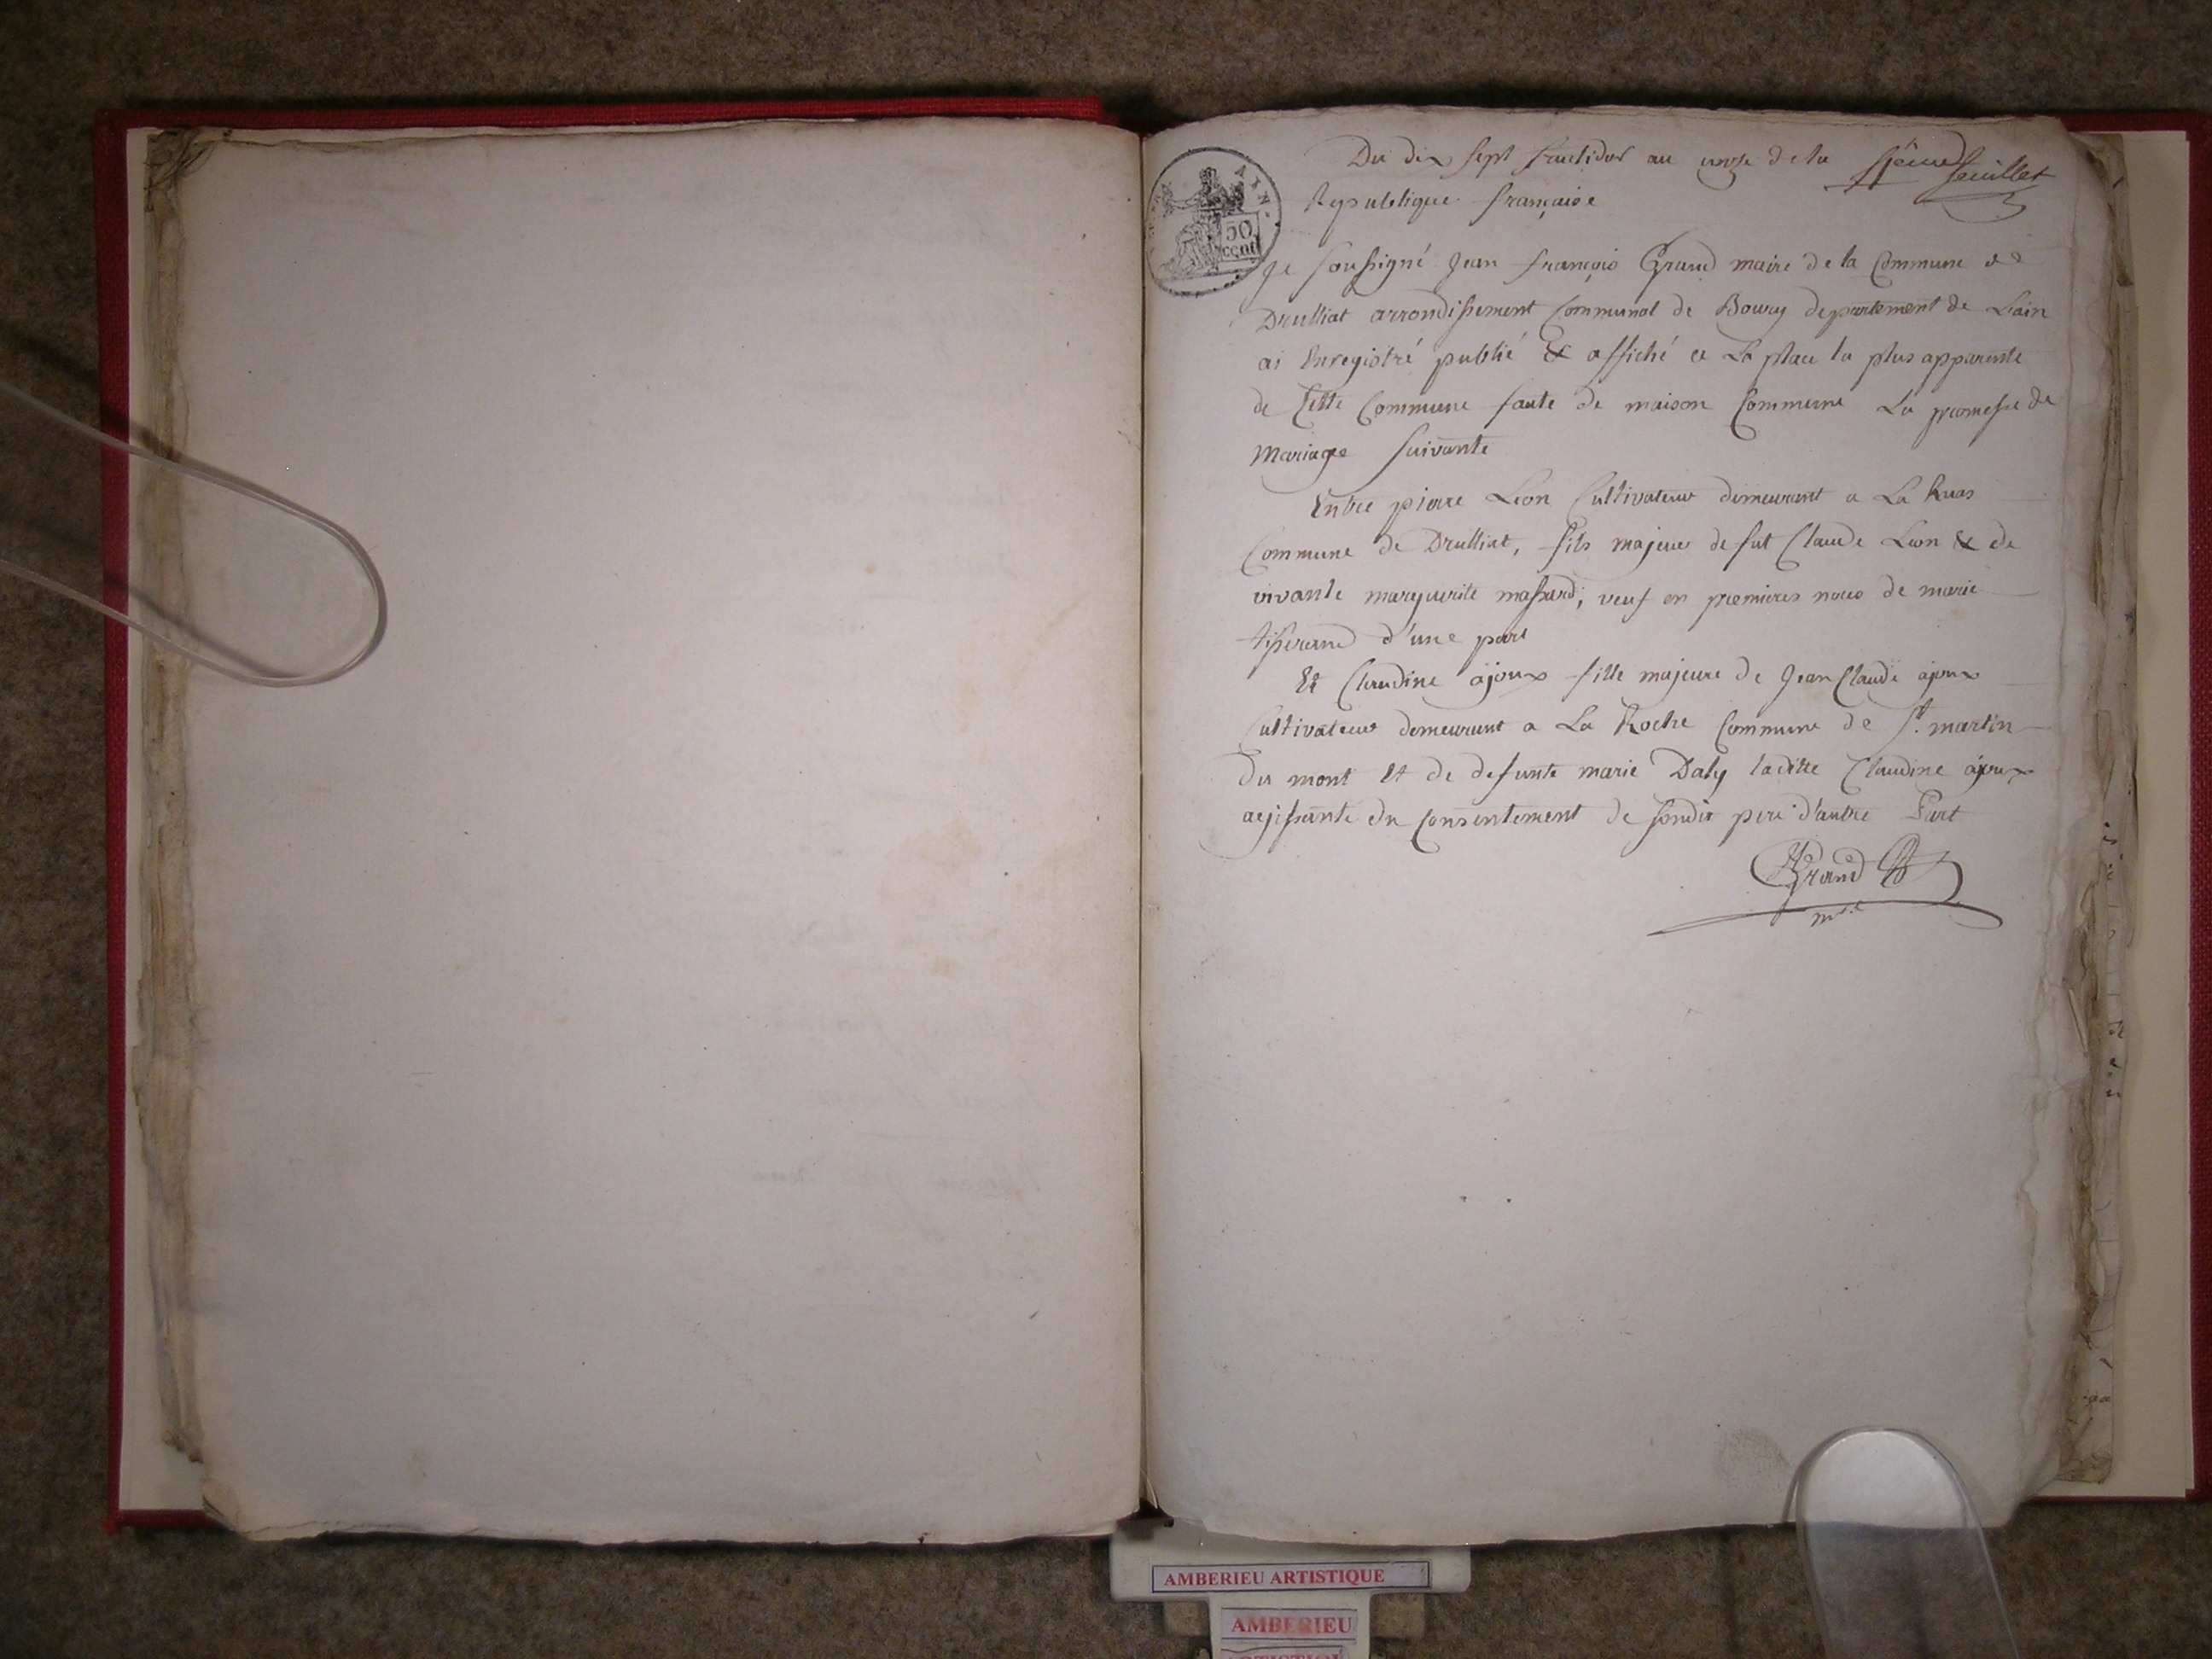 Du dix sept fructidor an onze de la
Republique française
feuillet
AIN.
50
cent
Je soussigné Jean françois Grand maire de la Commune de
Drulliat arrondissement Communal de Bourg departement de Lain
ai Enregistré publié & affiché a La place la plus apparente
de Cette Commune faute de maison Commune La promesse de
Mariage Suivante
Entre pierre Lion Cultivateur demeurant a La Ruas
Commune de Drulliat, fils majeur de fut Claude Lion & de
vivante marguerite massard, veuf en premieres noces de marie
tisserand d'une part
Et Claudine ajoux fille majeure de Jean Claude ajoux
Cultivateur demeurant a La Roche Commune de St. martin
du mont Et de defunte marie Daly laditte Claudine ajoux
agissante du Consentement de sondit pere d'autre Part
Grand
AMBERIEU ARTISTIQUE
AMBERIEU